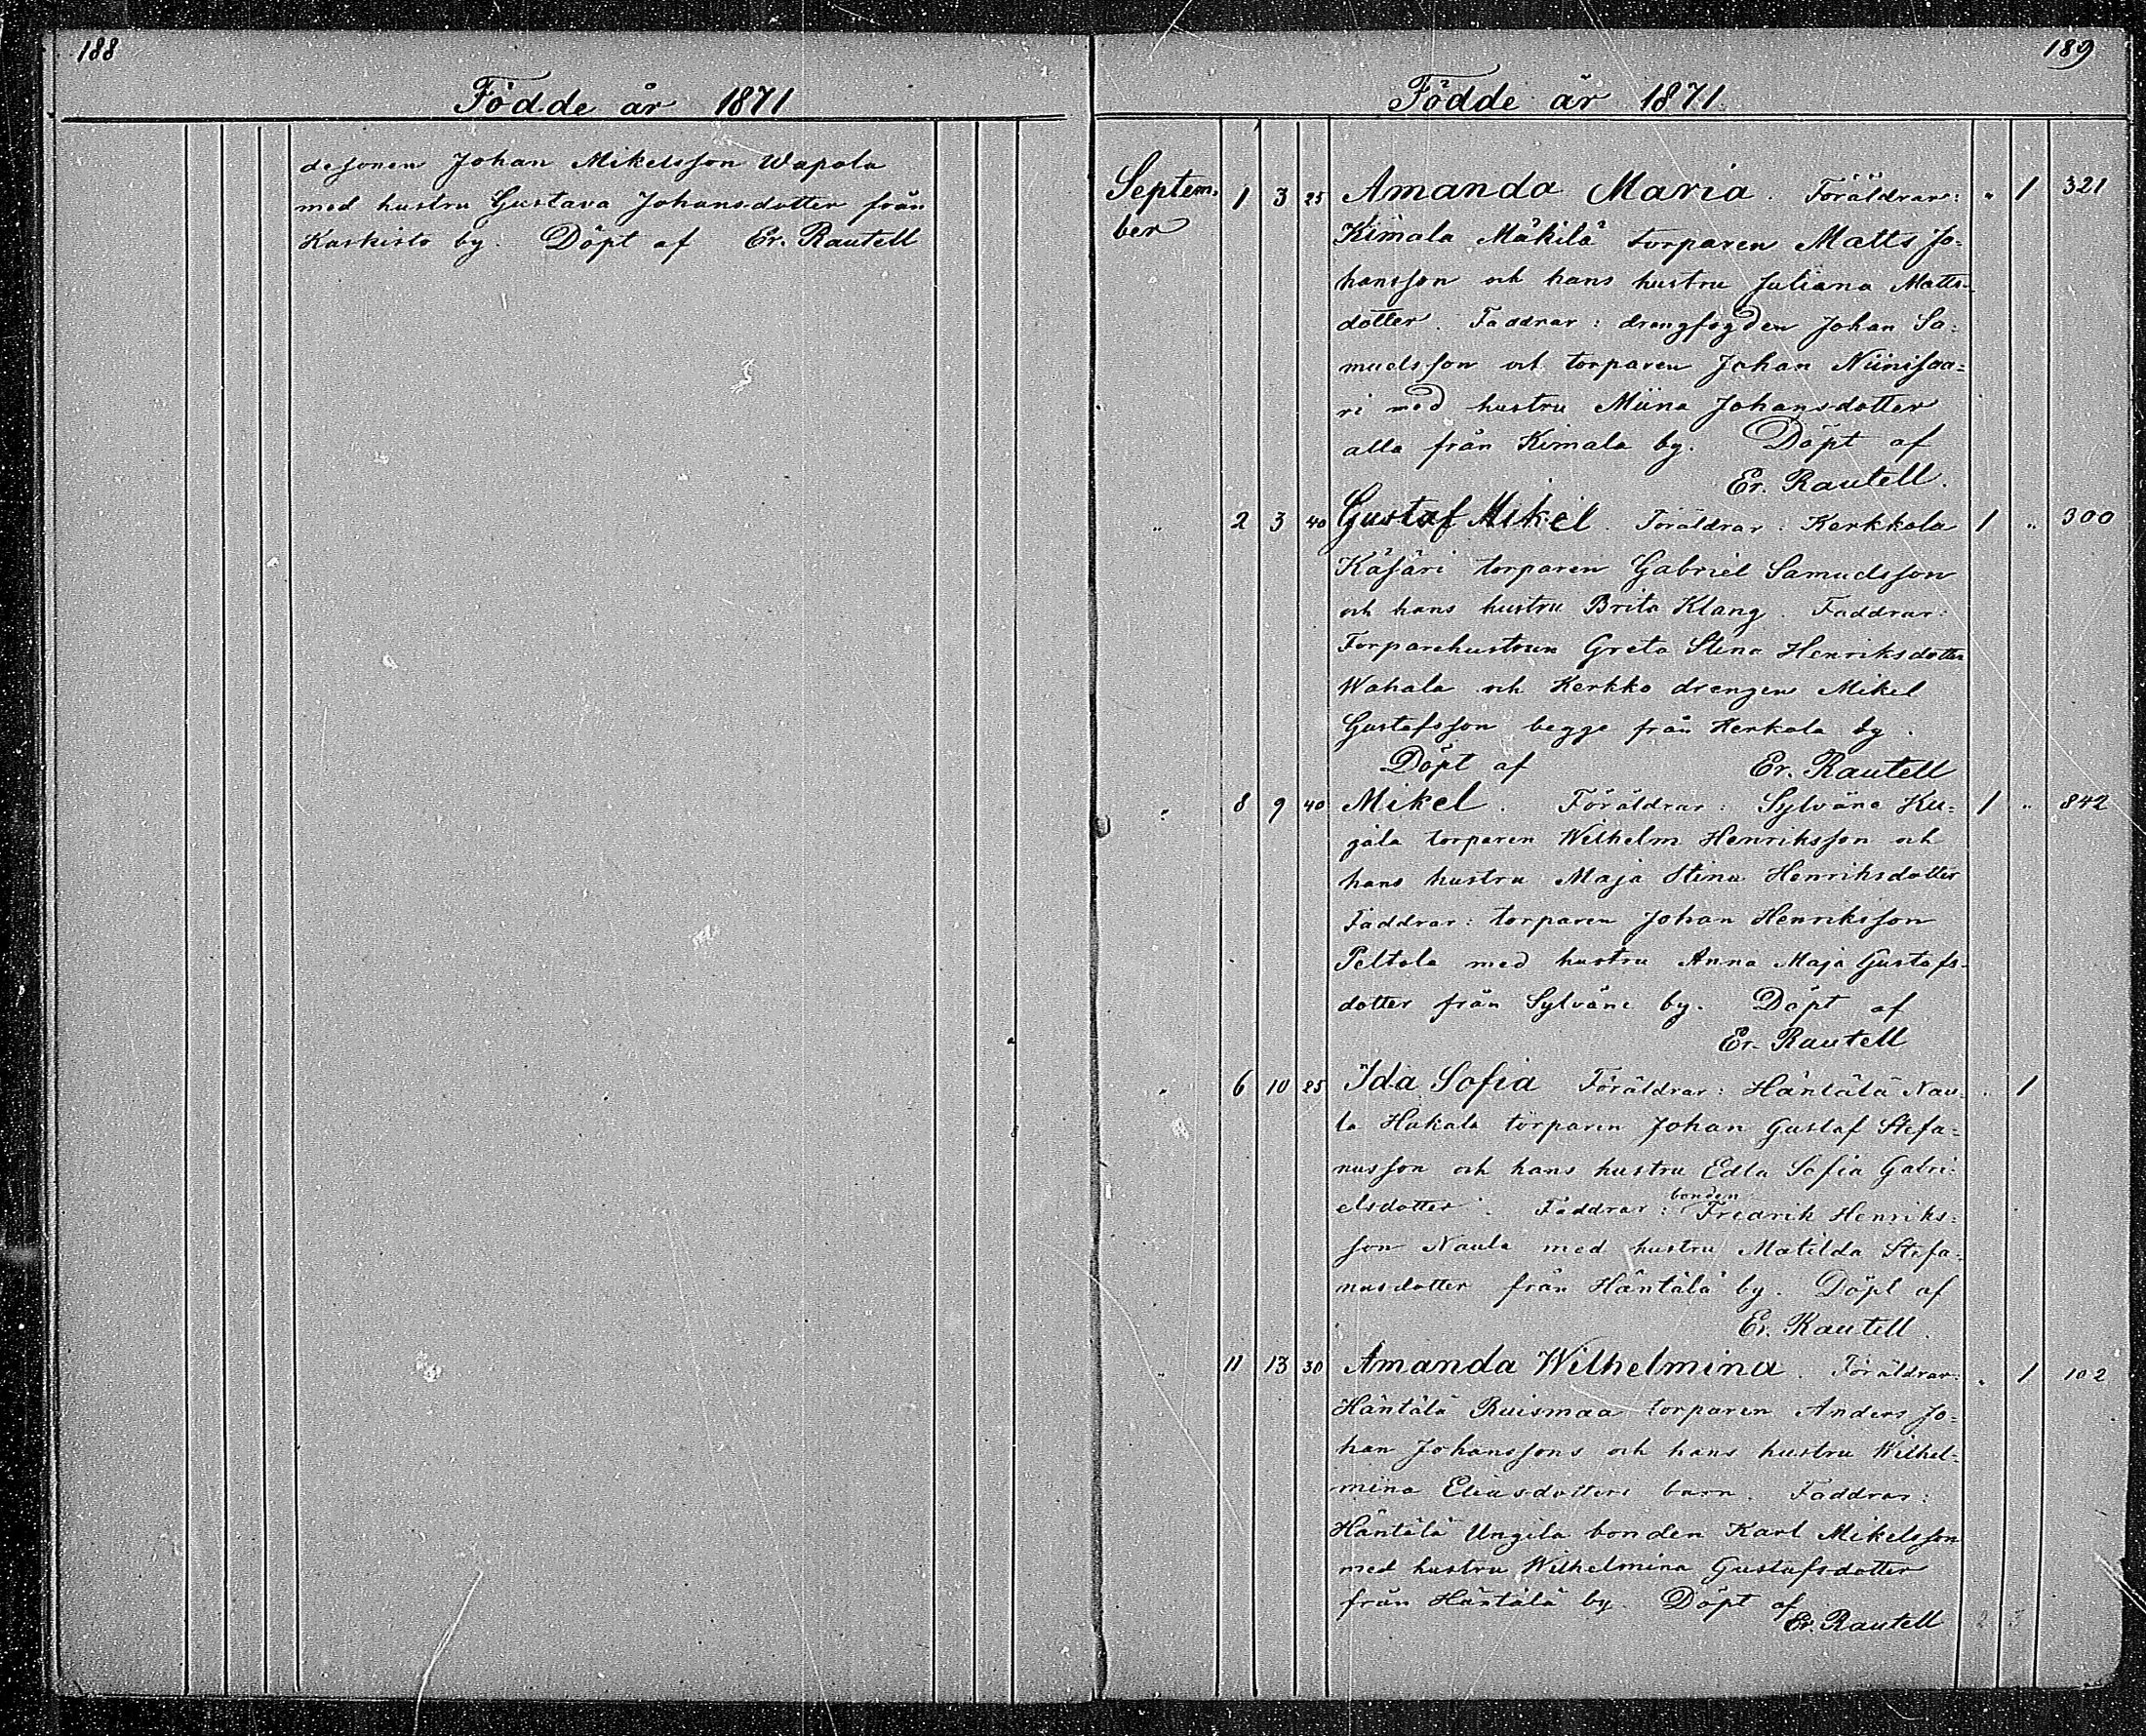 188
Födde år 1871
desonen Johan Mikelsson Wapola
med hustru Gustava Johansdotter från
Kaskisto by. Döpt af Er. Rautell
189
Födde år 1871
Septem- 1 3 25 Amanda Maria. Föräldrar: " 1 321
ber Kimala Mäkilä torparen Matts Jo-
hansson och hans hustru Juliana Matts-
dotter. Faddrar: drengfogden Johan Sa-
muelsson och torparen Johan Niinisaa-
ri med hustru Miina Johansdotter
alla från Kimala by. Döpt af
Er. Rautell.
" 2 3 40 Gustaf Mikel. Föräldrar: Kerkkola 1 " 300
Käsäri torparen Gabriel Samuelsson
och hans hustru Brita Klang. Faddrar:
Torparehustrun Greta Stina Henriksdotter
Wahala och Kerkko drengen Mikel
Gustafsson begge från Kerkola by.
Döpt af Er. Rautell
" 8 9 40 Mikel. Föräldrar: Sylväne Ku- 1 " 842
jala torparen Wilhelm Henriksson och
hans hustru Maja Stina Henriksdotter
Faddrar: torparen Johan Henriksson
Peltola med hustru Anna Maja Gustafs-
dotter från Sylväne by. Döpt af
Er. Rautell
" 6 10 25 Ida Sofia Föräldrar: Häntälä Nau- " 1
la Hakala torparen Johan Gustaf Stefa-
nusson och hans hustru Edla Sofia Gabri-
elsdotter. Faddrar: bonden Fredrik Henriks-
son Naula med hustru Matilda Stefa-
nusdotter från Häntälä by. Döpt af
Er. Rautell.
" 11 13 30 Amanda Wilhelmina. Föräldrar: " 1 102
Häntälä Ruismaa torparen Anders Jo-
han Johanssons och hans hustru Wilhel-
mina Eliasdotters barn. Faddrar:
Häntälä Ungila bonden Karl Mikelsson
med hustru Wilhelmina Gustafsdotter
från Häntälä by. Döpt af
Er. Rautell 2 3